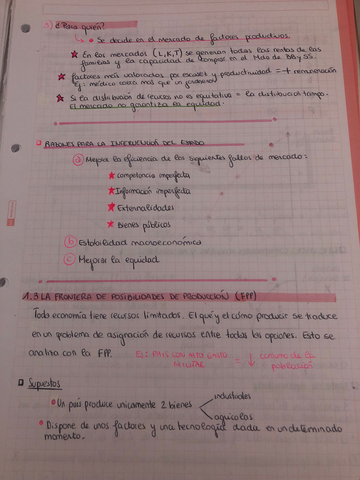 3) ¿Para quién?
Se decide en el mercado de factores productivos.
En los mercados (L,K,T) se generan todas las rentas de las
familias y la capacidad de compra en el Mdo de BByss.
factores más valorados por escasez y productividad = + remuneración
Ej: médico cobra más que un jardinero
Si la distribución de recursos no es equitativa = la distribución tampo.
El mercado no garantiza la equidad.
RAZONES PARA LA INTERVENCIÓN DEL ESTADO
a) Mejorar la eficiencia de los siguientes fallos de mercado:
competencia imperfecta
Información imperfecta
Externalidades
Bienes públicos
b) Estabilidad macroeconómica
c) Mejorar la equidad
1.3 LA FRONTERA DE POSIBILIDADES DE PRODUCCIÓN (FPP)
Toda economía tiene recursos limitados. El qué y el cómo producir se traduce
en un problema de asignación de recursos entre todas las opciones. Esto se
analiza con la FPP.
Ej: PAIS CON ALTO GASTO MILITAR = ↓ consumo de la población
Supuestos
Un país produce unicamente 2 bienes
industriales
agrícolas
Dispone de unos factores y una tecnología dada en un determinado
momento.